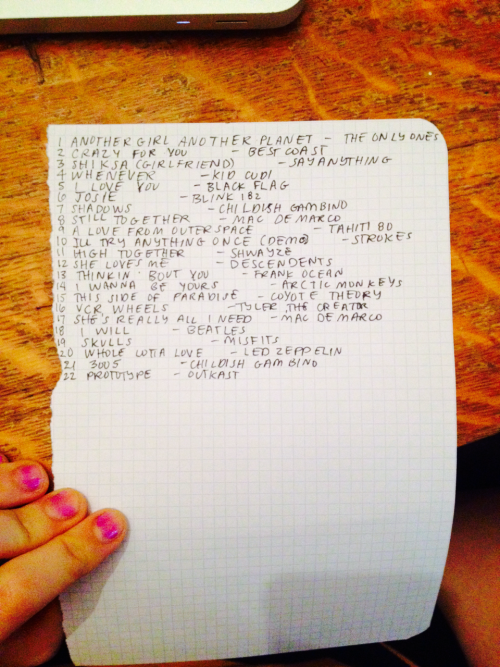 1 ANOTHER GIRL ANOTHER PLANET - THE ONLY ONES
2 CRAZY FOR YOU - BEST COAST
3 SHIKSA (GIRLFRIEND) - SAY ANYTHING
4 WHENEVER - KID CUDI
5 I LOVE YOU - BLACK FLAG
6 JOSIE - BLINK 182
7 SHADOWS - CHILDISH GAMBINO
8 STILL TOGETHER - MAC DE MARCO
9 A LOVE FROM OUTERSPACE - TAHITI 80
10 I'LL TRY ANYTHING ONCE (DEMO) - STROKES
11 HIGH TOGETHER - SHWAYZE
12 SHE LOVES ME - DESCENDENTS
13 THINKIN' BOUT YOU - FRANK OCEAN
14 I WANNA BE YOURS - ARCTIC MONKEYS
15 THIS SIDE OF PARADISE - COYOTE THEORY
16 VCR WHEELS - TYLER, THE CREATOR
17 SHE'S REALLY ALL I NEED - MAC DE MARCO
18 I WILL - BEATLES
19 SKULLS - MISFITS
20 WHOLE LOTTA LOVE - LED ZEPPELIN
21 3005 - CHILDISH GAMBINO
22 PROTOTYPE - OUTKAST